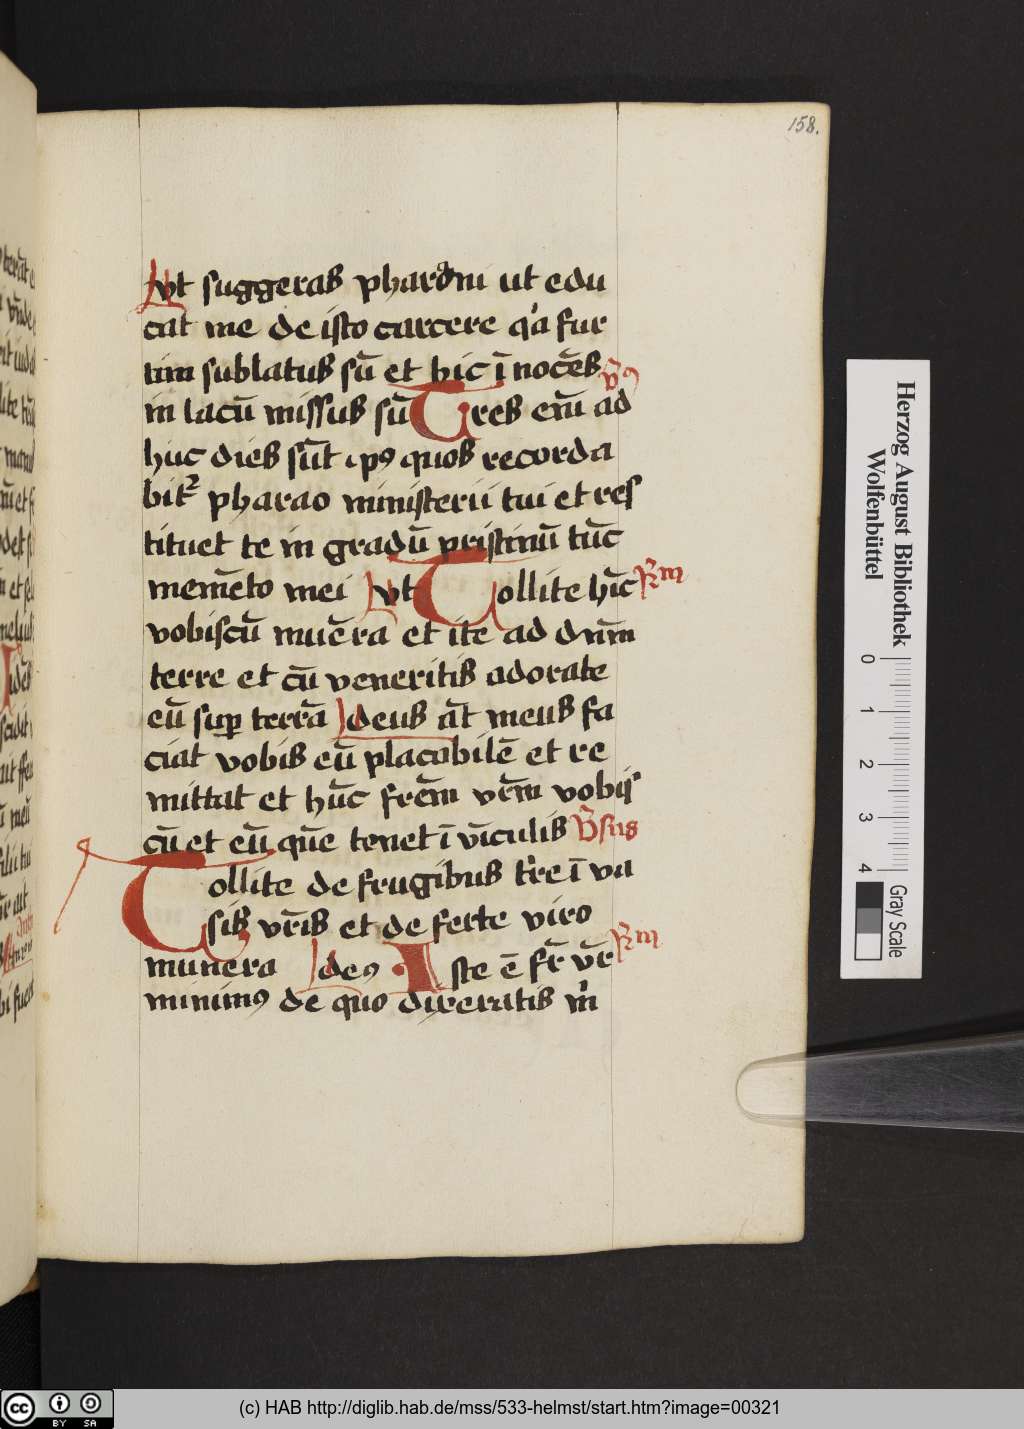 158.
Vt suggeras pharaoni ut edu
cat me de isto carcere q'a fur
tim sublatus sū et hic ī nocēs
in lacū missus sū Tres em̄ ad v̄9
huc dies sūt ip9 quos recorda
bit2 pharao ministerii tui et res
tituet te in gradū pristinū tūc
memēto mei Vt Tollite hīc Rm
vobiscū muēra et ite ad dnm̄
terre et cū veneritis adorate
eū sup terrā deus āt meus fa
ciat vobis eū placabilē et re
mittat et hūc frēm vr̄m vobis
cū et eū quē tenet ī vīculis v̄sus
Tollite de frugibus tr̄e ī va
sis vr̄is et deferte viro
munera de9 Iste ē fr̄ vr̄ Rm
minim9 de quo dixeratis m'
Herzog August Bibliothek
Wolfenbüttel
0 1 2 3 4
Gray Scale
(c) HAB http://diglib.hab.de/mss/533-helmst/start.htm?image=00321
cc BY SA